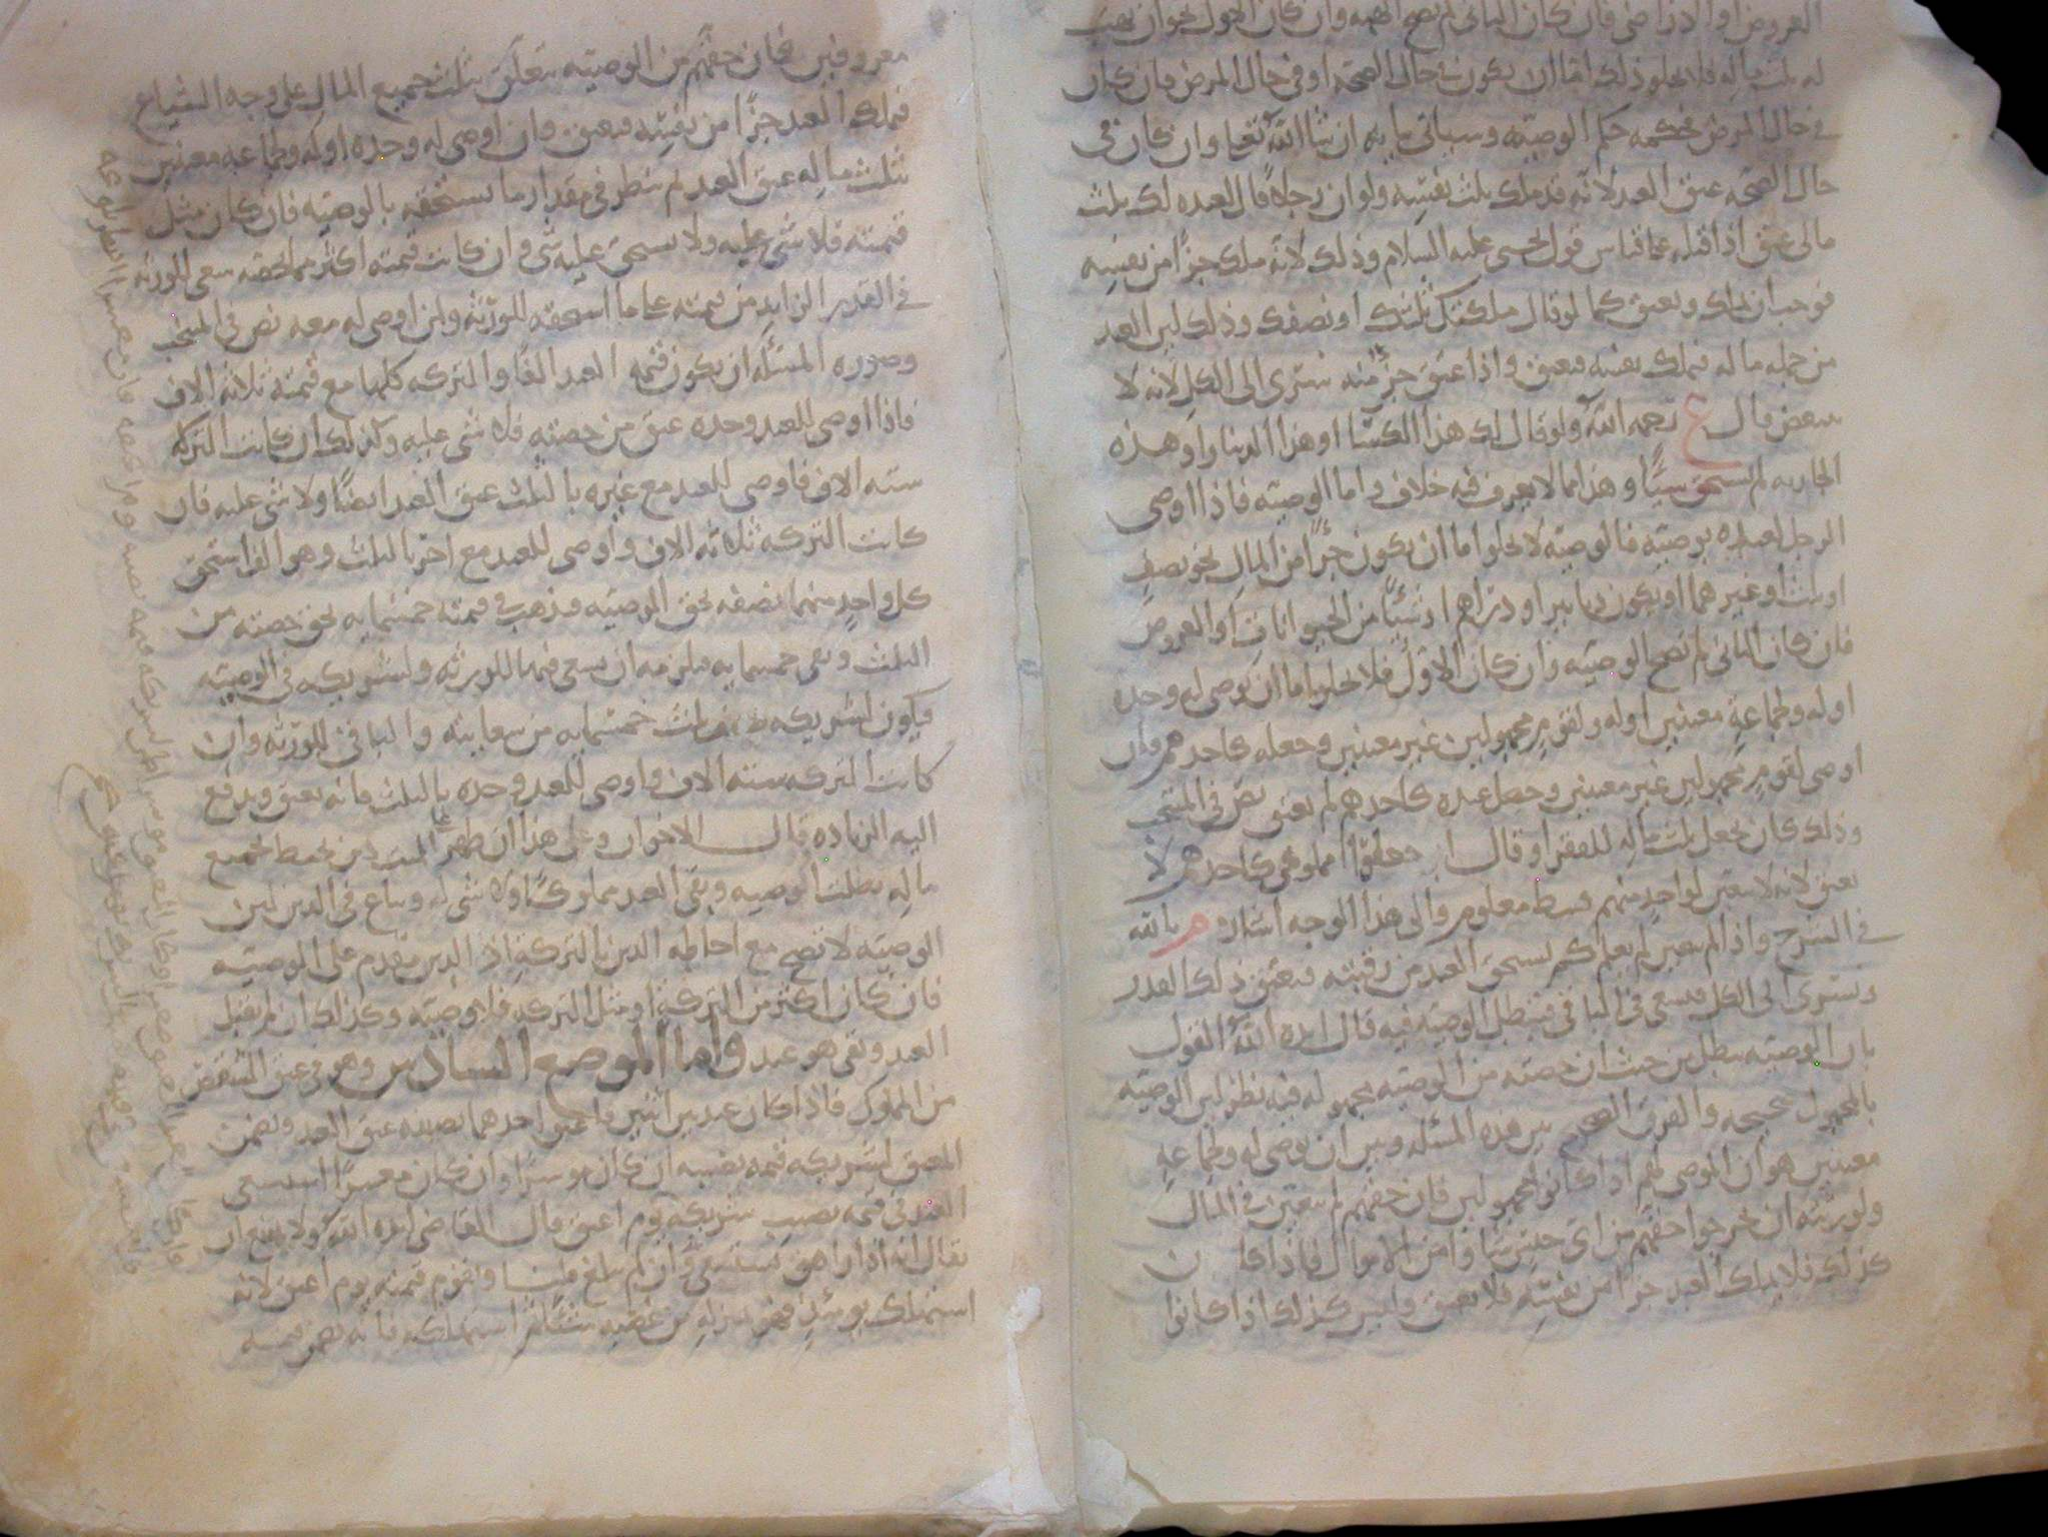 العروض او الدراهم فان كان الثاني لم تصح الهبة وان كان الاول نحو ان يهب
له ثلث ماله فلا يخلو ذلك اما ان يكون في حال الصحة او في حال المرض فان كان
في حال المرض فحكمه حكم الوصية وسياتي بيانه ان شا الله تعالى وان كان في
حال الصحة عتق العبد لانه قد ملك ثلث نفسه ولو ان رجلا قال لعبده لك ثلث
مالي عتق اذا قبل على قياس قول يحيى عليه السلام وذلك لانه ملك جزءا من نفسه
فوجب ان يملك ويعتق كما لو قال ملكتك ثلثك او نصفك وذلك لان العبد
من جملة ماله فيملك بعضه فيعتق واذا عتق جزء منه سرى الى الكل لانه لا
يتبعض قال ع رحمه الله ولو قال لك هذا الكسا او هذا الدينار او هذه
الجارية لم يستحق شيئا وهذا مما لا يعرف فيه خلاف واما الوصية فاذا اوصى
الرجل لعبده بوصية فالوصية لا تخلوا اما ان يكون جزءا من المال نحو نصف
او ثلث او غيرهما او يكون دنانير او دراهم او شيئا من الحيوانات او العروض
فان كان الثاني لم تصح الوصية وان كان الاول فلا يخلو اما ان يوصي له وحده
او له ولجماعة معينين او له ولقوم مجهولين غير معينين وجعله كاحدهم فان
اوصى لقوم مجهولين غير معينين وجعل عبده كاحدهم لم يعتق نص في المنتخب
وذلك كان يجعل ثلث ماله للفقرا وقال اجعلوا مملوكي كاحدهم لا
يعتق لانه لا يتعين لواحد منهم قسط معلوم والى هذا الوجه اشار م بالله
في الشرح واذا لم يتعين لم يعلم كم يستحق العبد من رقبته فيعتق ذلك القدر
ويسري الى الكل فيسعى في الباقي فتبطل الوصية فيه قال ايده الله القول
بان الوصية تبطل من حيث ان حصته من الوصية مجهولة فيه نظر لان الوصية
بالمجهول صحيحة والفرق الصحيح بين هذه المسئلة وبين ان يوصي له ولجماعة
معينين هو ان الموصى لهم اذا كانوا مجهولين فان حقهم لم يتعين في المال
ولورثته ان يخرجوا حقهم من اي جنس شاوا من الاموال فاذا كان
كذلك فلا يملك العبد جزءا من نفسه فلا يعتق وليس كذلك اذا كانوا
معروفين فان حقهم من الوصية يتعلق بثلث جميع المال على وجه الشياع
فيملك العبد جزءا من نفسه فيعتق وان اوصى له وحده او له ولجماعة معينين
بثلث ماله عتق العبد ثم ينظر في مقدار ما يستحقه بالوصية فان كان مثل
قيمته فلا شي عليه ولا يستحق عليه شي وان كانت قيمته اكثر مما لحقه سعى للورثة
في القدر الزايد من قيمته على ما استحقه للورثة ولمن اوصى له معه نص في المنتخب
وصورة المسئلة ان يكون قيمة العبد الفا والتركة كلها مع قيمته ثلاثة الاف
فاذا اوصى للعبد وحده عتق من حصته فلا شي عليه وكذلك ان كانت التركة
ستة الاف فاوصى للعبد مع غيره بالثلث عتق العبد ايضا ولا شي عليه فان
كانت التركة ثلاثة الاف واوصى للعبد مع اخر بالثلث وهو الف استحق
كل واحد منهما نصفه بحق الوصية فذهب في قيمته خمسمايه بحق حصته من
الثلث وبقي خمسمايه يلزمه ان يسعى فيها للورثة ولشريكه في الوصية
فيكون لشريكه ثلث خمسمايه من سعايته والباقي للورثة وان
كانت التركة ستة الاف واوصى للعبد وحده بالثلث فانه يعتق ويدفع
اليه الزيادة قال الاخوان وعلى هذا ان ظهر على الميت دين يحيط بجميع
ماله بطلت الوصية وبقي العبد مملوكا ولا شي له ويباع في الدين لان
الوصية لا تصح مع احاطة الدين بالتركة اذ الدين مقدم على الوصية
فان كان اكثر من التركة او مثل التركة فلا وصية وكذلك ان لم يقبل
العبد وبقي هو عبد واما الموضع السادس وهو في عتق الشقص
من المملوك فاذا كان عبد بين اثنين فاعتق احدهما نصيبه عتق العبد ويضمن
المعتق لشريكه قيمة نصيبه ان كان موسرا وان كان معسرا استسعى
العبد في قيمة نصيب شريكه يوم اعتق قال القاضي ايده الله ولا يمتنع ان
يقال انه اذا راهق يستسعى وان لم يبلغ مبلغا ويقوم قيمته يوم اعتق لانه
استهلك يومئذ فهو بمنزلة من غصب شيئا ثم استهلكه فانه يضمن قيمته